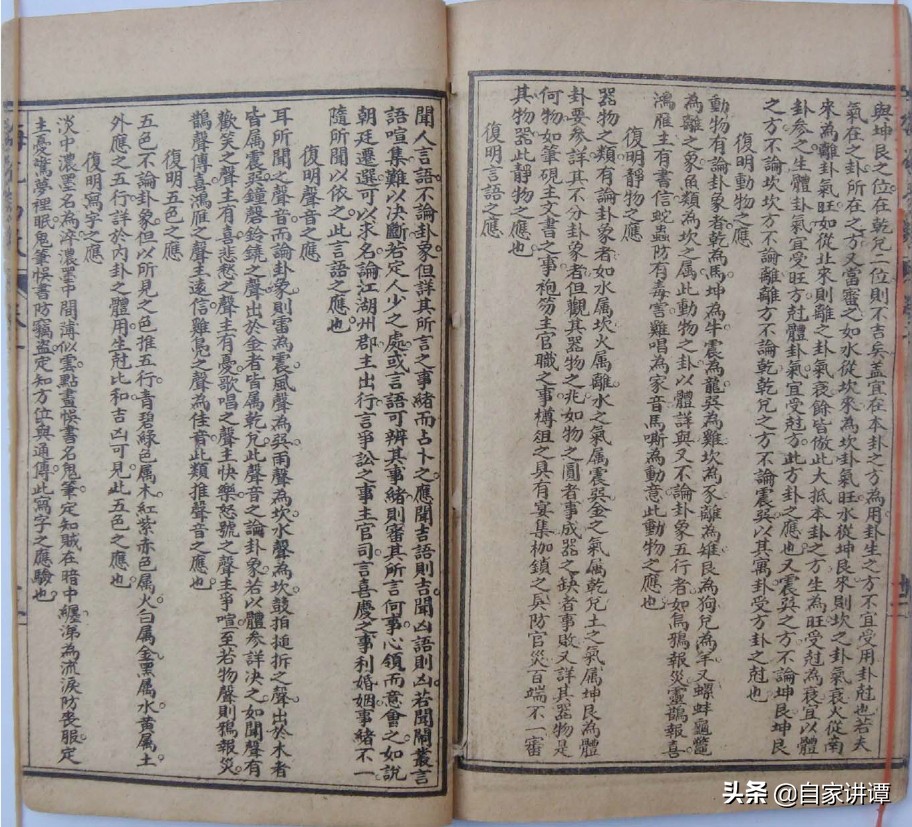 與坤艮之位在乾兌二位則不吉矣盖宜在本卦之方為用卦生之方不宜受用卦尅也若夫
氣在之卦所在之方又當審之如水從坎來為坎卦氣旺水從坤艮來則坎之卦氣衰火從南
來為離卦氣旺如從北來則離之卦氣衰餘皆倣此大抵本卦之方生為旺受尅為衰宜以體
卦參之生體卦氣宜受旺方尅體卦氣宜受尅方此方卦之應也又震巽之方不論坤艮坤艮
之方不論坎坎方不論離離方不論乾乾兌之方不論震巽以其寓卦受方卦之尅也
復明動物之應
動物有論卦象者乾為馬坤為牛震為龍巽為雞坎為豕離為雉艮為狗兌為羊又螺蚌龜鱉
為離之象魚類為坎之属此動物之卦以體詳與又不論卦象五行者如烏鴉報災靈鵲報喜
鴻雁主有書信蛇蟲防有毒害雞唱為家音馬嘶為動意此動物之應也
復明靜物之應
器物之類有論卦象者如水属坎火属離水之氣属震巽金之氣属乾兌土之氣属坤艮為體
卦要參詳其不分卦象者但觀其器物之兆如物之圓者事成器之缺者事敗又詳其器物是
何物如筆硯主文書之事袍笏主官職之事樽俎之具有宴集枷鎖之具防官災百端不一審
其物器此靜物之應也
復明言語之應
聞人言語不論卦象但詳其所言之事緒而占卜之應聞吉語則吉聞凶語則凶若聞鬧叢言
語喧集難以決斷若定人少之處或言語可辨其事緒則審其所言何事心領而意會之如説
朝廷遷選可以求名論江湖州郡主出行言爭訟之事主官司言喜慶之事利婚姻事緒不一
隨所聞以依之此言語之應也
復明聲音之應
耳所聞之聲音而論卦象則雷為震風聲為巽雨聲為坎水聲為坎鼓拍搥折之聲出於木者
皆属震巽鐘磬鈴鐃之聲出於金者皆属乾兌此聲音之論卦象若以體參詳决之如聞聲有
歡笑之聲主有喜悲愁之聲主有憂歌唱之聲主快樂怒號之聲主爭喧至若物聲則鴉報災
鵲聲傳喜鴻雁之聲主遠信雞鳧之聲為佳音此類推聲音之應也
復明五色之應
五色不論卦象但以所見之色推五行青碧綠色属木紅紫赤色属火白属金黑属水黃属土
外應之五行詳於内卦之體用生尅比和吉凶可見此五色之應也
復明寫字之應
淡中濃墨名為淬濃墨中間薄似雲點畫悮書名鬼筆定知賊在暗中纏涕為流淚防喪服定
主憂驚夢裡眠鬼筆悮書防竊盜定知方位與通傳此寫字之應驗也
头条 @自家讲谭